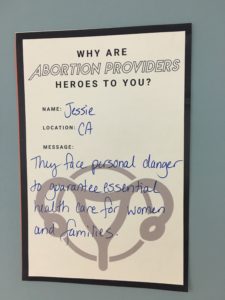 WHY ARE
ABORTION PROVIDERS
HEROES TO YOU?
NAME: Jessie
LOCATION: CA
MESSAGE:
They face personal danger
to guarantee essential
health care for women
and families.